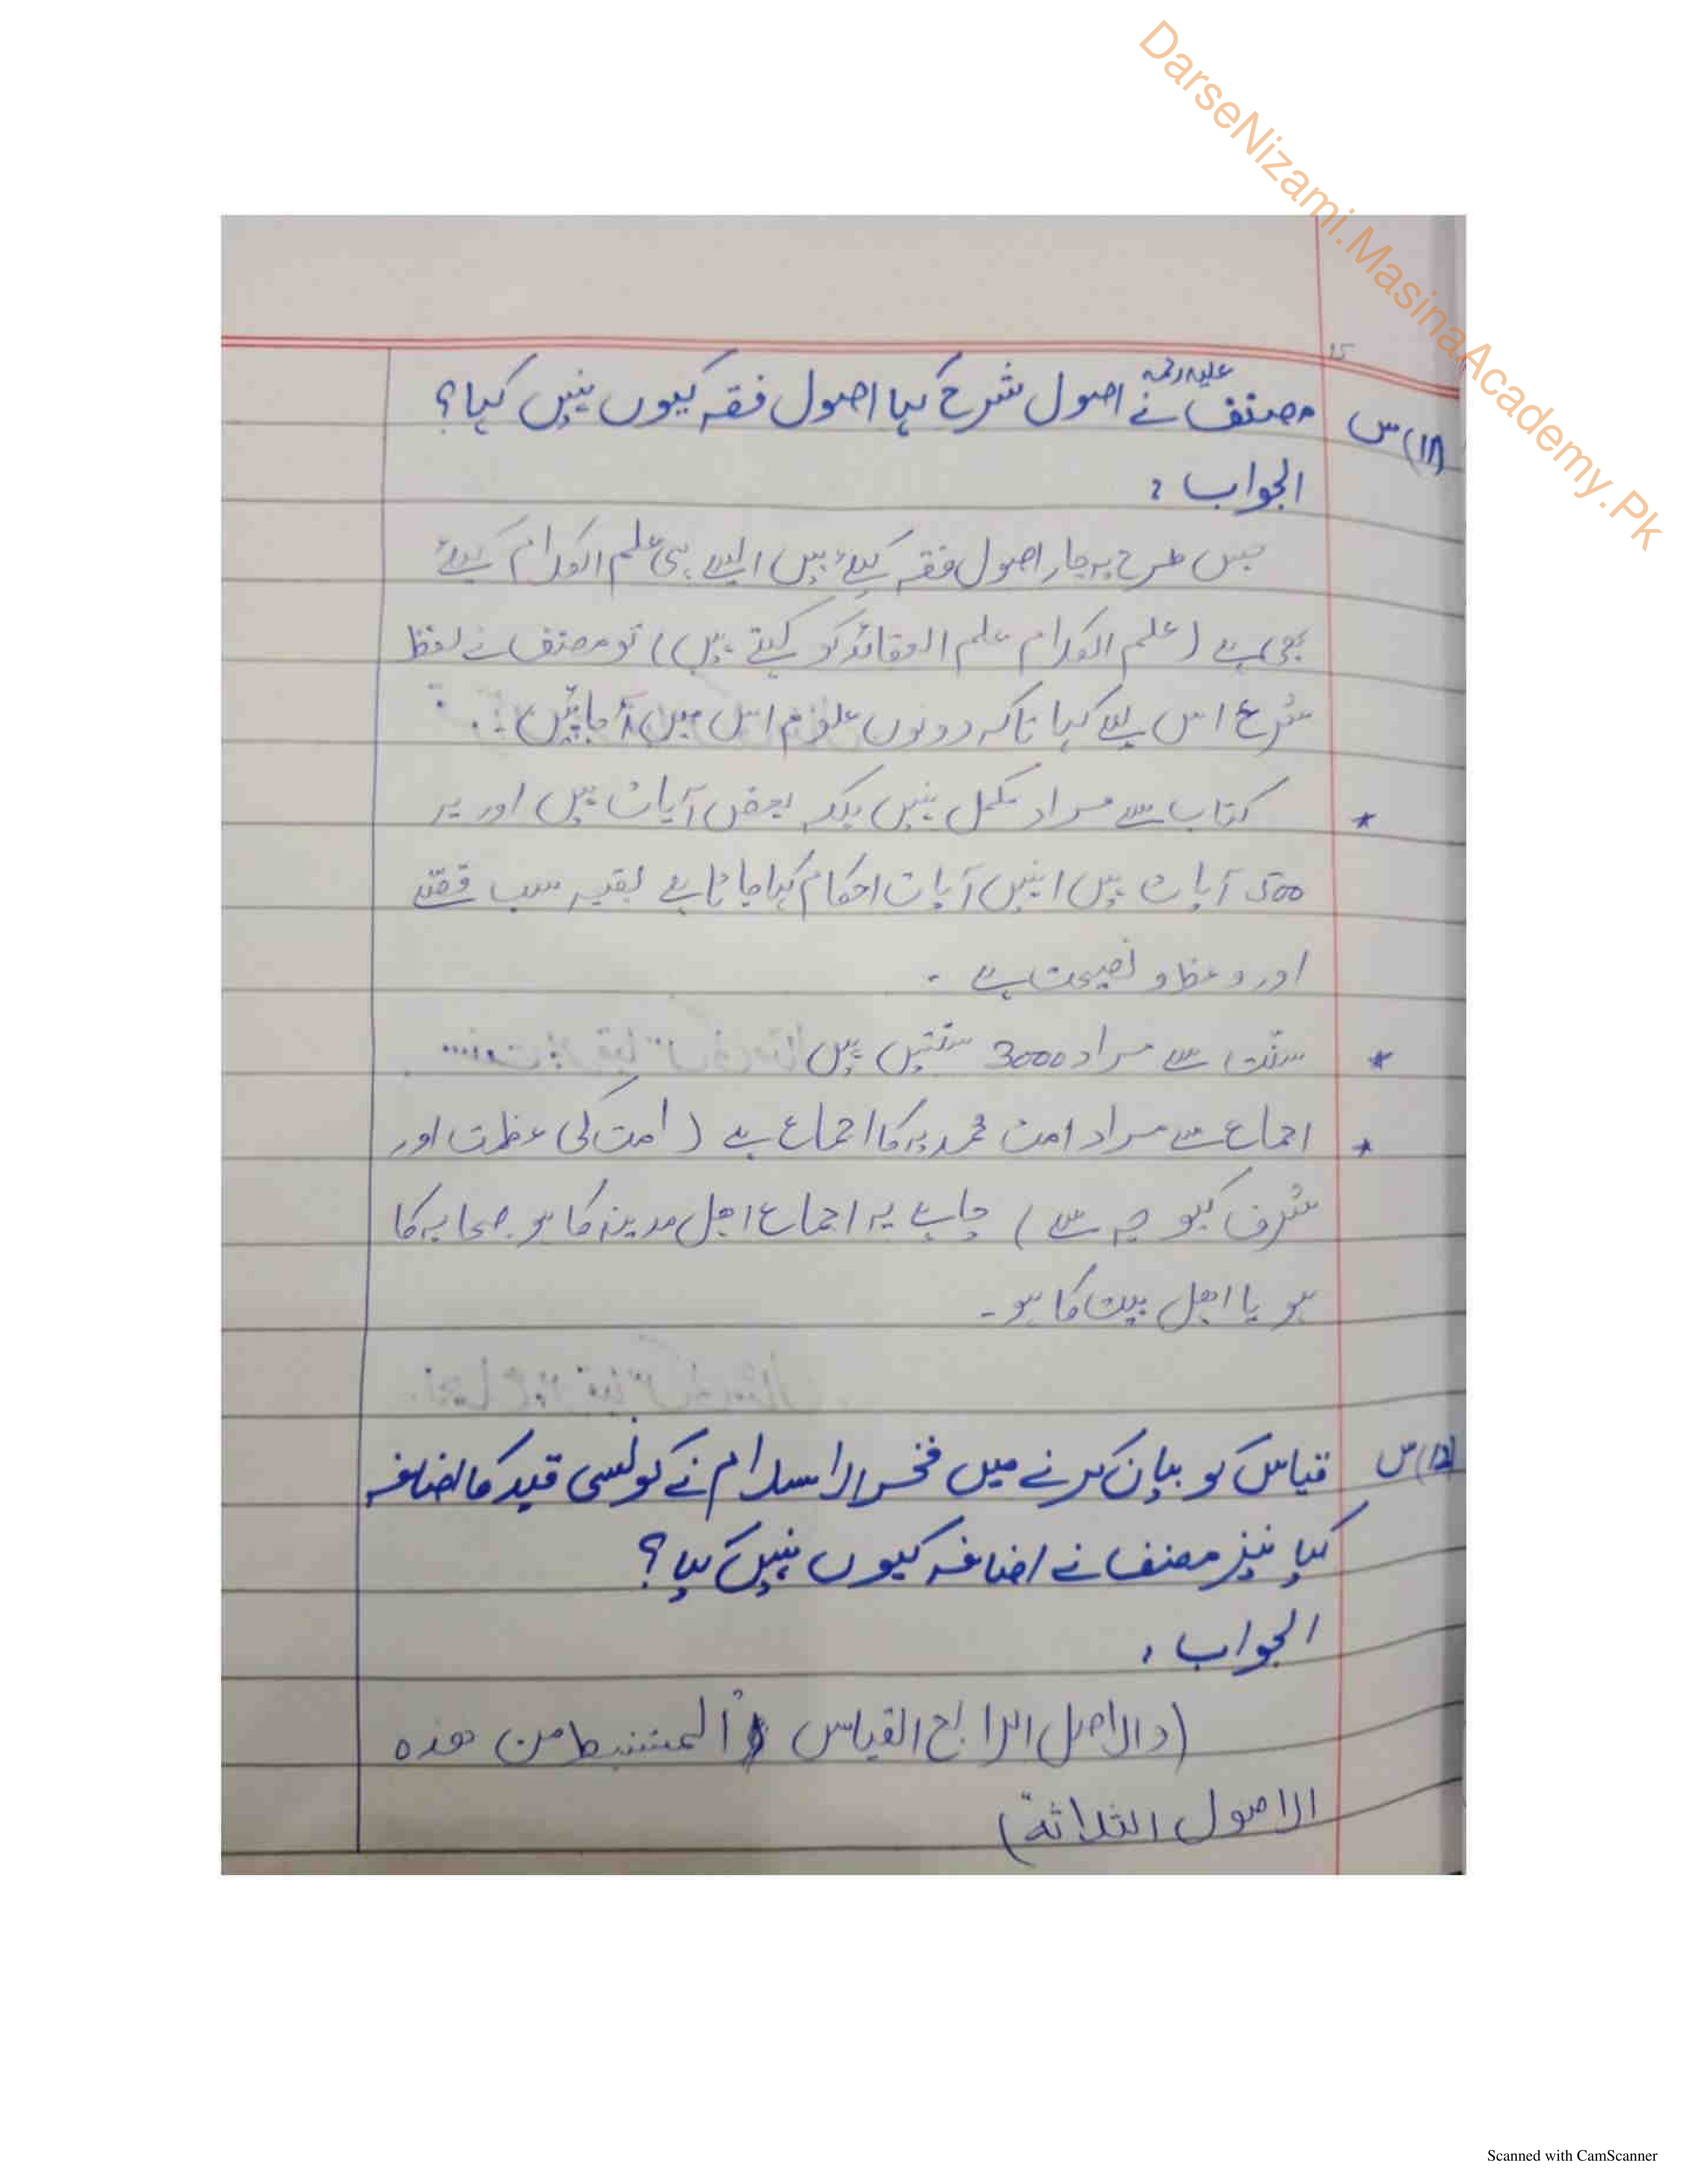 DarseNizami.MasinaAcademy.Pk
15
س(11) مصنف علیہ رحمہ نے اصول شرح کہا اصول فقہ کیوں نہیں کہا؟
الجواب :
جس طرح یہ چار اصول فقہ کیلئے ہیں ایسے ہی علم الکلام کیلئے
بھی ہے (علم الکلام علم العقائد کو کہتے ہیں) تو مصنف نے لفظ
شرع اس لیے کہا تاکہ دونوں علوم اس میں آ جائیں۔
* کتاب سے مراد مکمل نہیں بلکہ بعض آیات ہیں اور یہ
500 آیات ہیں انہیں آیات احکام کہا جاتا ہے بقیہ سب قصے
اور وعظ و نصیحت ہے ۔
* سنت سے مراد 3000 سنتیں ہیں
* اجماع سے مراد امت محمدیہ کا اجماع ہے (امت کی عظمت اور
شرف کیوجہ سے) چاہے یہ اجماع اہل مدینہ کا ہو صحابہ کا
ہو یا اھل بیت کا ہو۔
س(12) قیاس کو بیان کرنے میں فخر الاسلام نے کونسی قید کا اضافہ
کیا نیز مصنف نے اضافہ کیوں نہیں کیا؟
الجواب :
(والاصل الرابع القیاس المستنبط من ھذہ
الاصول الثلاثۃ)
Scanned with CamScanner